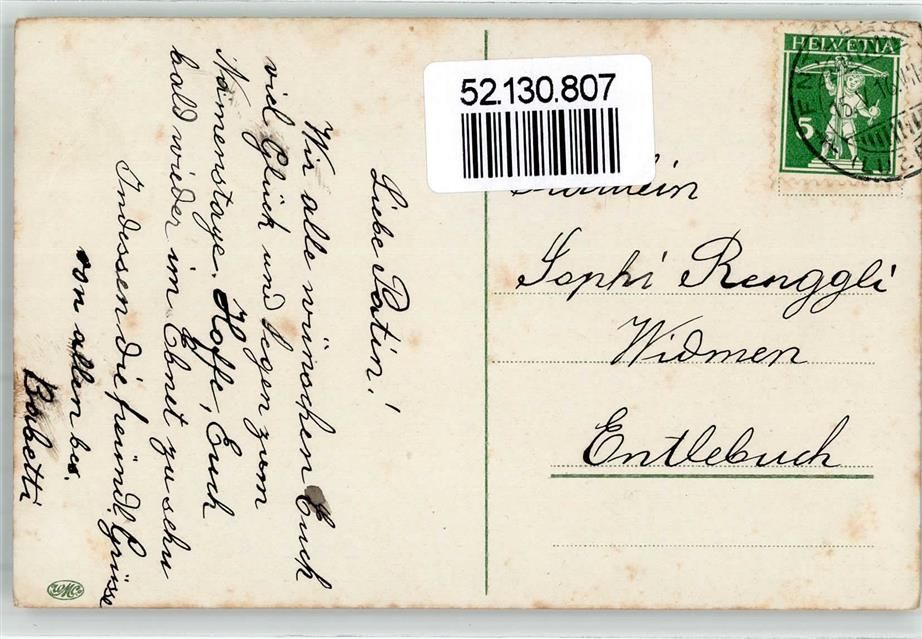 Liebe Patin!
Wir alle wünschen Euch
viel Glück und Segen zum
Namenstage. Hoffe, Euch
bald wieder im Ebnet zu sehn
Indessen die freundl. Grüsse
von allen bes.
Babetti
52.130.807
Fräulein
Sophi Renggli
Widmen
Entlebuch
HELVETIA
5
WMCo